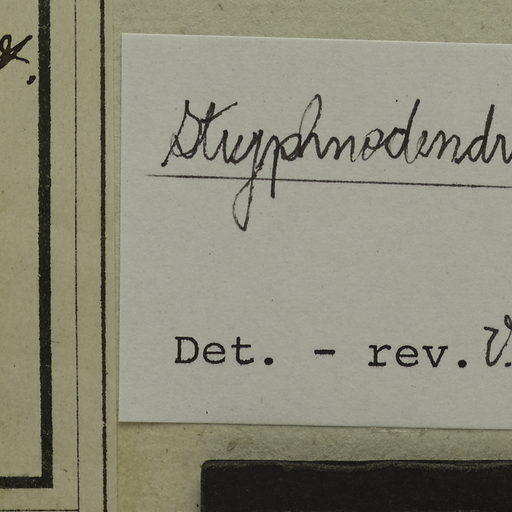 Stryphnodendr
Det. - rev. V.